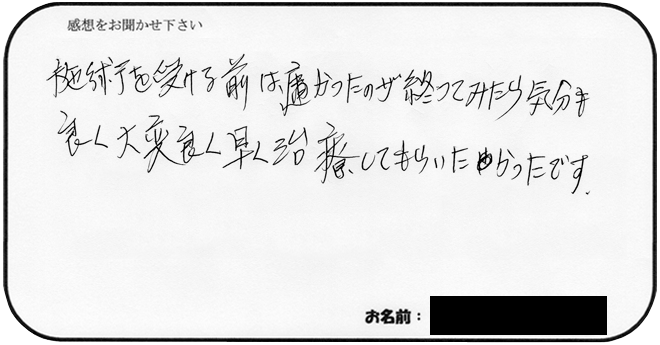 感想をお聞かせ下さい
施術を受ける前は痛かったのが終ってみたら気分も
良く大変良く早く治療してもらいたかったです。
お名前：